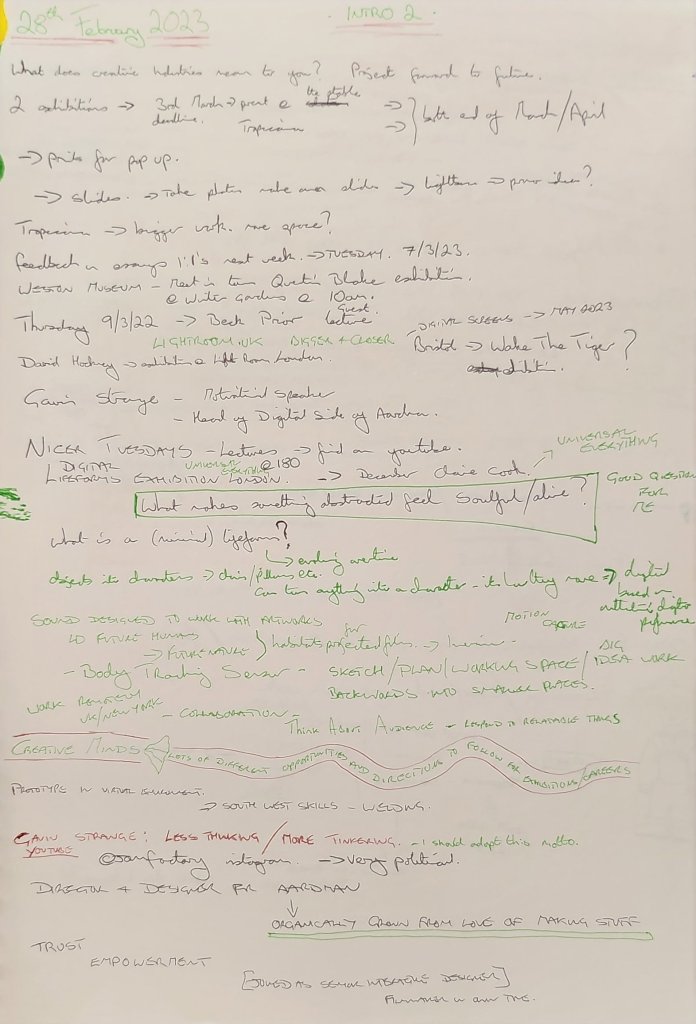 28th February 2023
INTRO 2.
What does creative industries mean to you? Project forward to future.
2 exhibitions → 3rd March → @ the → } both end of March/April
deadline. Tropicana →
→ prints for pop up.
→ slides. → Take photos make own slides → lightbox →
Tropicana → bigger work. more space?
feedback on essays 1:1's next week. → TUESDAY. 7/3/23.
WESTON MUSEUM – Meet in town Quentin Blake exhibition.
@ Winter Gardens @ 10am.
Thursday 9/3/22 → Beck Prior Guest lecture
DIGITAL SCREENS → MAY 2023
LIGHTROOM.UK BIGGER & CLOSER
Bristol → Wake The Tiger ?
David Hockney → exhibition @ Light Room London.
exhibition.
Gavin Strange – Motivational Speaker
– Head of Digital Side of Aardman.
NICER TUESDAYS – Lectures → find on youtube.
UNIVERSAL EVERYTHING
DIGITAL UNIVERSAL EVERYTHING @180
LIFEFORMS EXHIBITION LONDON. → December Claire Cook.
What makes something abstracted feel soulful/alive?
GOOD QUESTION FOR ME
What is a (minimal) lifeform?
↳ evolving overtime
objects into characters → chairs/pillows etc.
Can turn anything into a character – it's how they move → digital
based on
preference
SOUND DESIGNED TO WORK WITH ARTWORKS
MOTION CAPTURE
FUTURE HUMANS
→ FUTURE NATURE } habitats for projected films. →
– Body Tracking Sensor – SKETCH/PLAN/WORKING SPACE/ BIG IDEA WORK
BACKWORDS INTO SMALLER PLACES.
WORK REMOTELY
UK/NEW YORK – COLLABORATION –
THINK ABOUT AUDIENCE – RESPOND TO RELATABLE THINGS
CREATIVE MINDS
LOTS OF DIFFERENT OPPORTUNITIES AND DIRECTIONS TO FOLLOW FOR EXHIBITIONS/CAREERS
PROTOTYPE IN VIRTUAL ENVIRONMENT.
→ SOUTH WEST SKILLS – WELDING.
GAVIN STRANGE: LESS THINKING/MORE TINKERING. – I should adopt this motto.
YOUTUBE
@jamfactory instagram. → Very political.
DIRECTOR & DESIGNER FOR AARDMAN
↓
ORGANICALLY GROWN FROM LOVE OF MAKING STUFF
TRUST
EMPOWERMENT
[JOINED AS SENIOR INTERACTIVE DESIGNER]
FILMMAKER IN OWN TIME.